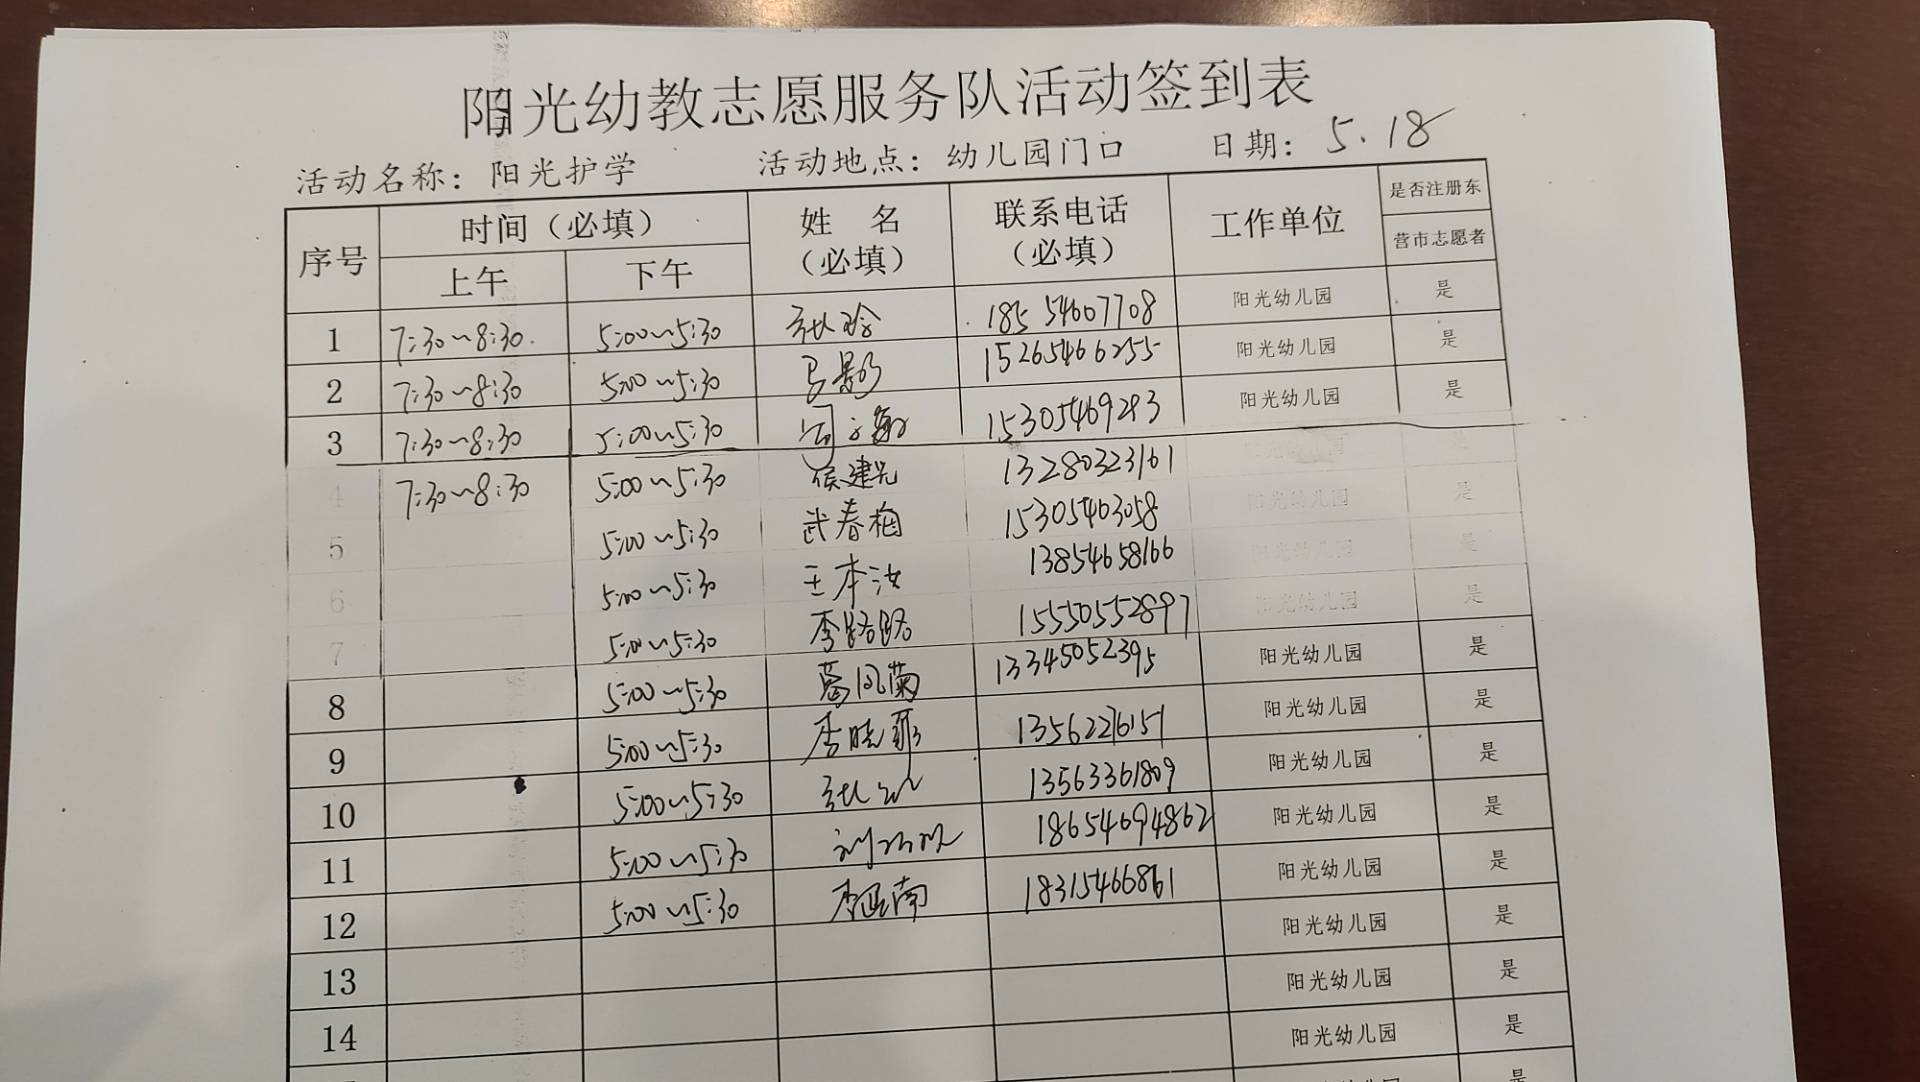 阳光幼教志愿服务队活动签到表
活动名称：阳光护学 活动地点：幼儿园门口 日期：5.18
序号 时间（必填） 姓 名（必填） 联系电话（必填） 工作单位 是否注册东
营市志愿者
上午 下午
1 7:30~8:30 5:00~5:30 张玲 18554607708 阳光幼儿园 是
2 7:30~8:30 5:00~5:30 马影 15265466255 阳光幼儿园 是
3 7:30~8:30 5:00~5:30 15305469283 阳光幼儿园 是
4 7:30~8:30 5:00~5:30 侯建光 13280323161 阳光幼儿园 是
5 5:00~5:30 武春梅 15305463058 阳光幼儿园 是
6 5:00~5:30 王本汝 13854658166 阳光幼儿园 是
7 5:00~5:30 李路路 15550552897 阳光幼儿园 是
8 5:00~5:30 葛风菊 13345052395 阳光幼儿园 是
9 5:00~5:30 李晓菲 13562276151 阳光幼儿园 是
10 5:00~5:30 13563361809 阳光幼儿园 是
11 5:00~5:30 18654694862 阳光幼儿园 是
12 5:00~5:30 18315466861 阳光幼儿园 是
13 阳光幼儿园 是
14 阳光幼儿园 是
是